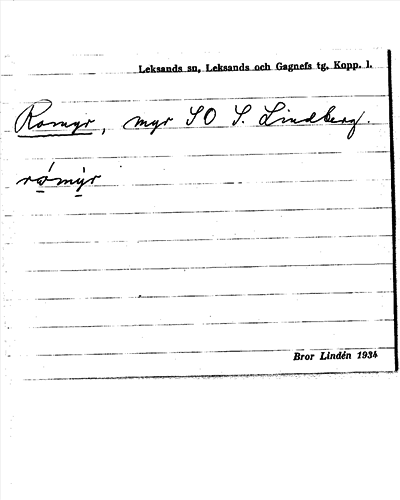 Leksands sn, Leksands och Gagnefs tg, Kopp. l.
Romyr, myr SO S. Lindberg.
rómỳr
Bror Lindén 1934